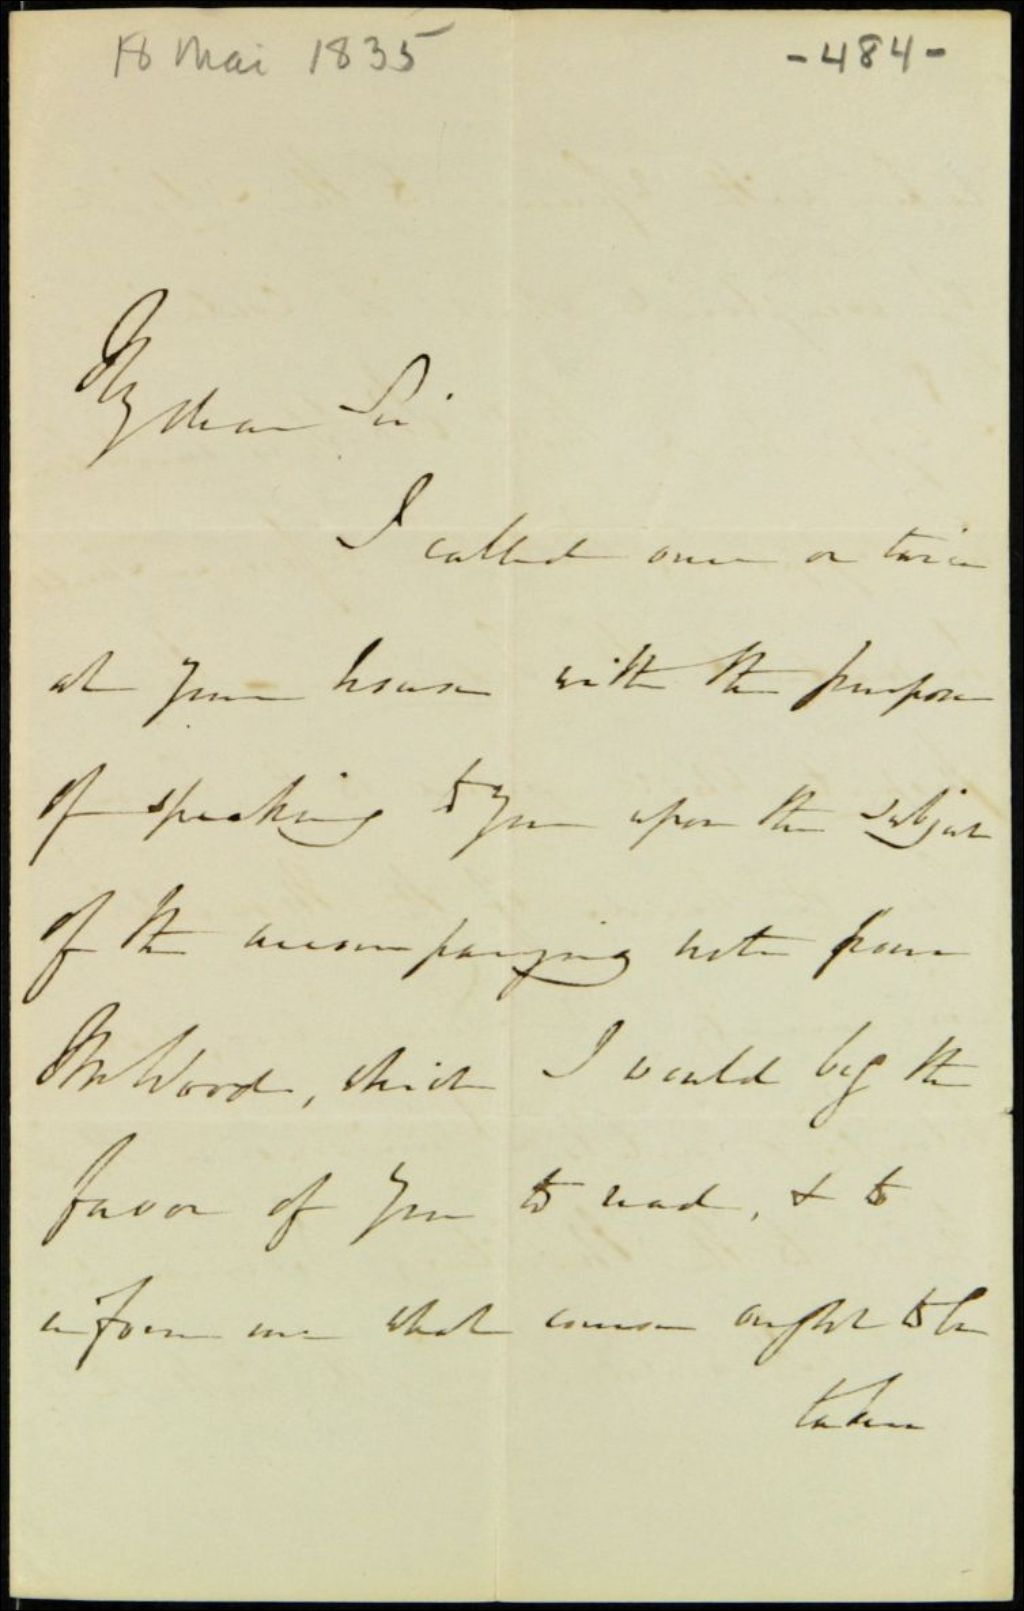 18 Mai 1835
-484-
My dear Sir
I called once or twice
at your house with the purpose
of speaking to you upon the subject
of the accompanying note from
Mr Wood, which I would beg the
favor of you to read, & to
inform me what course ought to be
taken